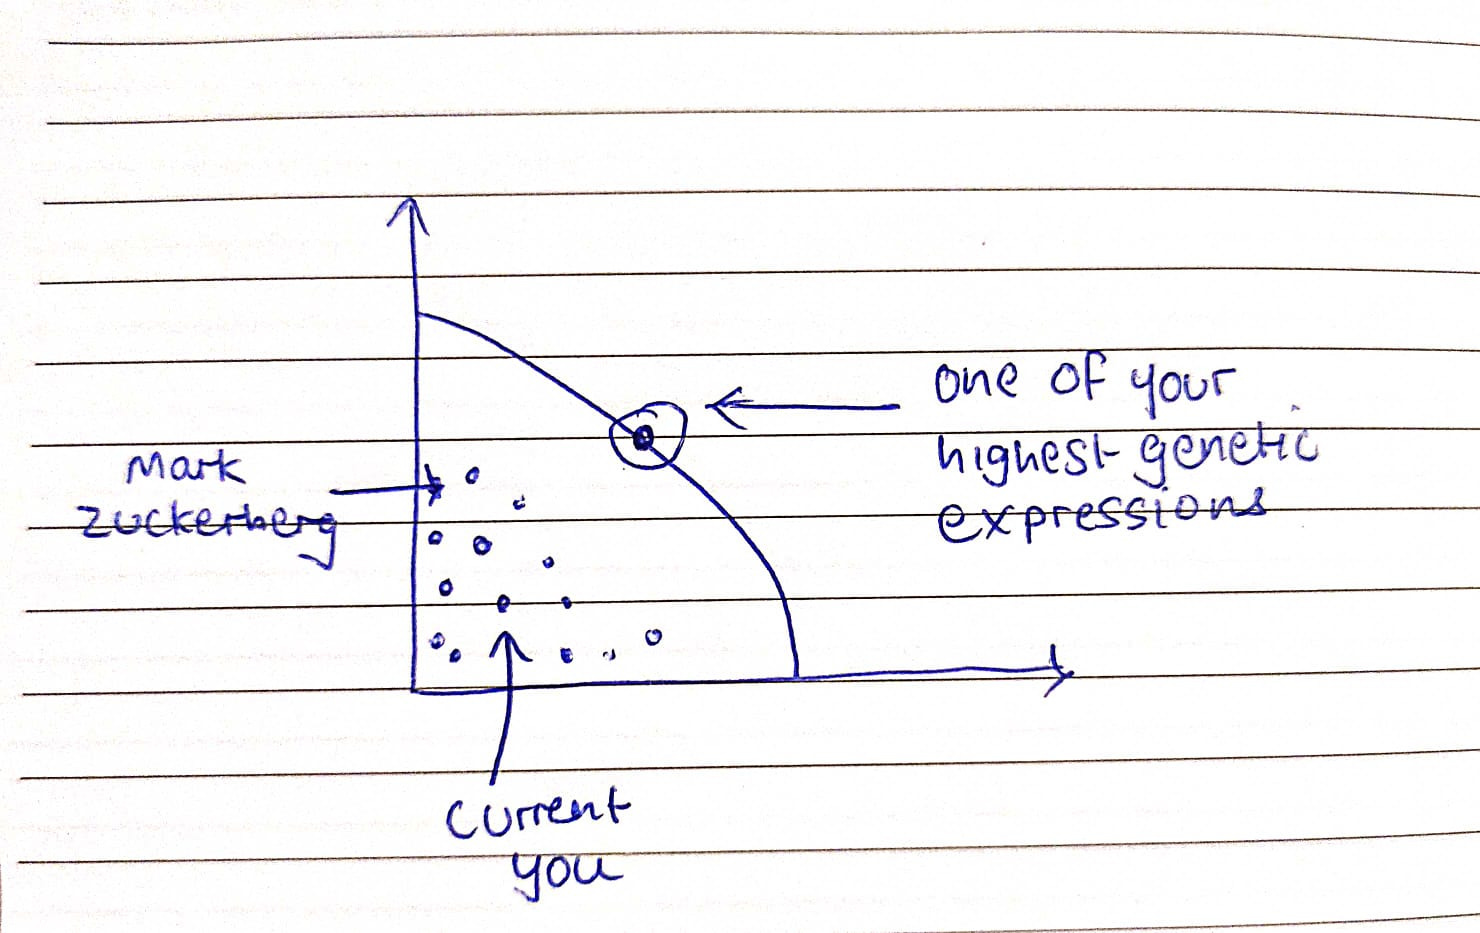 one of your
highest genetic
expressions
Mark
Zuckerberg
Current
you